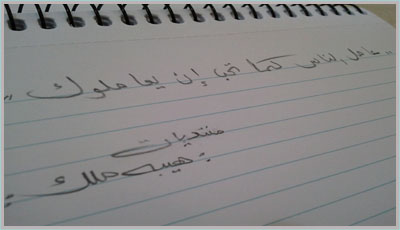 " عامل الناس كما تحب إن يعاملوك "
منتديات
: هيبه ملك :